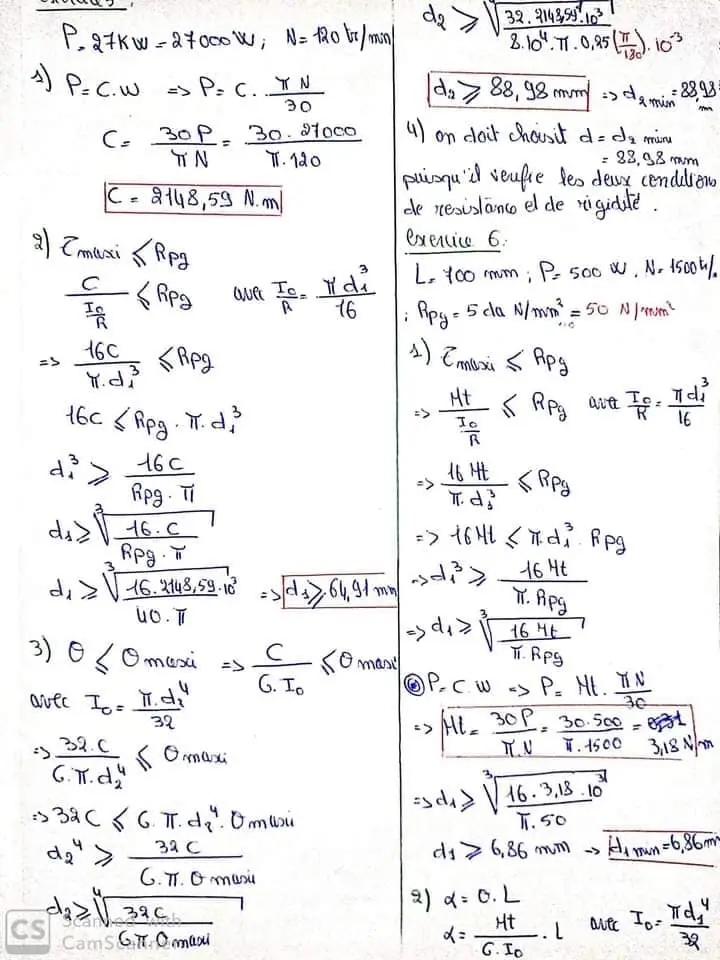 P = 27KW = 27000W ; N = 120 tr/min
1) P = C.W => P = C. πN/30
C = 30P/πN = 30.27000/π.120
C = 2148,59 N.m
2) τmaxi ≤ Rpg
C/(I0/R) ≤ Rpg avec I0/R = πd1³/16
=> 16C/π.d1³ ≤ Rpg
16C ≤ Rpg . π.d1³
d1³ ≥ 16C/Rpg.π
d1 ≥ ³√(16.C/Rpg.π)
d1 ≥ ³√(16.2148,59.10³/40.π) => d1 ≥ 64,91 mm
3) θ ≤ θmaxi => C/G.I0 ≤ θmaxi
avec I0 = π.d2⁴/32
=> 32.C/G.π.d2⁴ ≤ θmaxi
=> 32C ≤ G.π.d2⁴.θmaxi
d2⁴ ≥ 32C/G.π.θmaxi
d2 ≥ ⁴√(32C/G.π θmaxi)
CS Scanned with
CamScanner
d2 ≥ ⁴√(32.2148,59.10³/8.10⁴.π.0,25(π/180).10⁻³)
d2 ≥ 88,98 mm => d2 min = 88,98
m
4) on doit choisit d = d2 mini
= 88,98 mm
puisqu'il verifie les deux conditions
de resistance et de rigidité.
Exercice 6:
L = 700 mm ; P = 500 W . N = 1500 tr/
; Rpg = 5 da N/mm² = 50 N/mm²
1) τmaxi ≤ Rpg
=> Mt/(I0/R) ≤ Rpg avec I0/R = πd1³/16
=> 16 Mt/π.d1³ ≤ Rpg
=> 16Mt ≤ π.d1³ . Rpg
=> d1³ ≥ 16Mt/π.Rpg
=> d1 ≥ ³√(16 Mt/π.Rpg)
P = C.W => P = Mt. πN/30
=> Mt = 30P/π.N = 30.500/π.1500 = 3,18 N m
=> d1 ≥ ³√(16.3,18.10³/π.50)
d1 ≥ 6,86 mm => d1 min = 6,86 m
2) α = θ.L
α = Mt/G.I0 . L avec I0 = πd1⁴/32